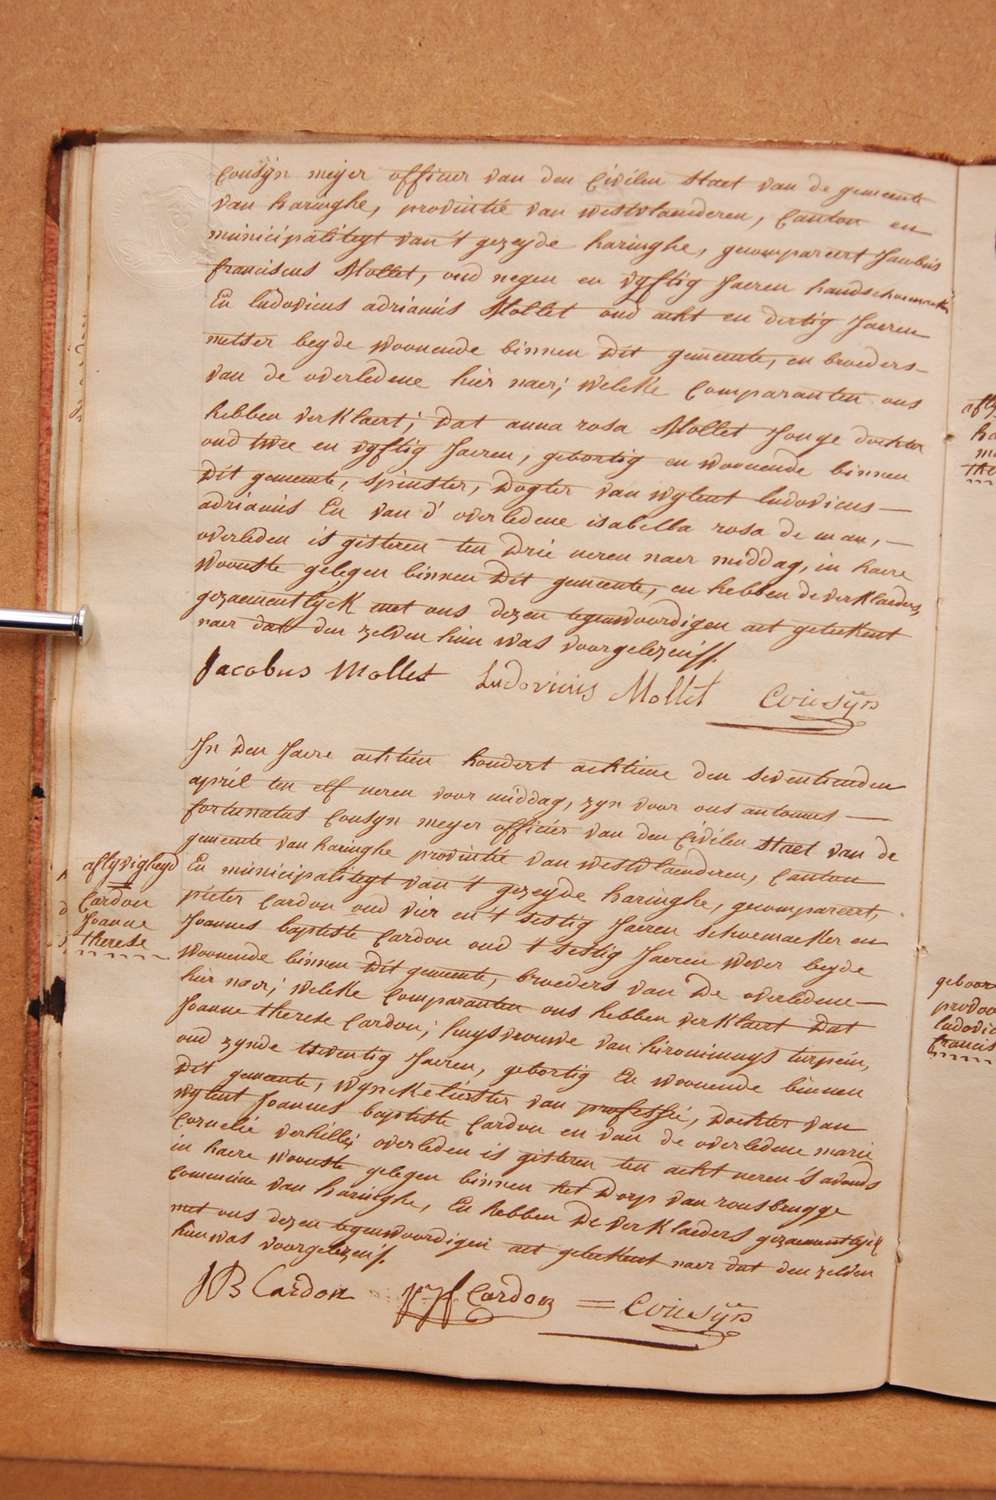 Cousÿn meyer officier van den Civilen Staet van de gemeente
van haringhe, provintie van westvlaenderen, Canton en
municipaliteyt van 't gezeyde haringhe, gecompareert Jacobus
franciscus Mollet, oud negen en vyftig Jaeren handschoenmaeker
En ludovicus adrianis Mollet oud acht en dertig Jaeren
metser beyde woonende binnen dit gemeente, en broeders
van de overledene hier naer; welcke Comparanten ons
hebben verklaert; dat anna rosa Mollet Jonge dochter
oud twee en vyftig Jaeren, gebortig en woonende binnen
dit gemeente, spinster, dogter van wylent ludovicus
adrianis En van d' overledene isabella rosa de man,
overleden is gisteren ten drie ueren naer middag, in haere
woonste gelegen binnen dit gemeente, en hebben de verklaeders
gezaementlyck met ons dezen tegenwoordigen act geteekent
naer dat den zelven hun was voorgelezen
Jacobus Mollet Ludovicus Mollet Cousÿn
In den Jaere achtien hondert achtiene den seventienden
april ten elf ueren voor middag, zyn voor ons antonius
fortunatus Cousyn meyer officier van den Civilen Staet van de
gemeente van haringhe provintie van westvlaenderen, Canton
En municipaliteyt van 't gezeyde haringhe, gecompareert,
pieter Cardon oud vier en 't sestig Jaeren schoemaeker en
Joannes baptiste Cardon oud 't sestig Jaeren wever beyde
woonende binnen dit gemeente, broeders van de overledene
hier naer; welcke comparanten ons hebben verklaert dat
Joanne therese Cardon; huysvrouwe van hironimuys turpein,
oud zynde twentig Jaeren, gebortig En woonende binnen
dit gemeente, wynckeliester van professie, dochter van
wylent Joannes baptiste Cardon en van de overledene marie
Cornelie verhille; overleden is gisteren ten acht ueren 's avonds
in haere woonste gelegen binnen het dorp van rousbrugge
Commune van haringhe, En hebben de verklaeders gezaementlyck
met ons dezen tegenwoordigen act geteekent naer dat den zelven
hun was voorgelezen
aflyvigheyd
Cardon
Joanne
therese
JB Cardon Cardon Cousÿn
geboor
provoo
ludovic
francis